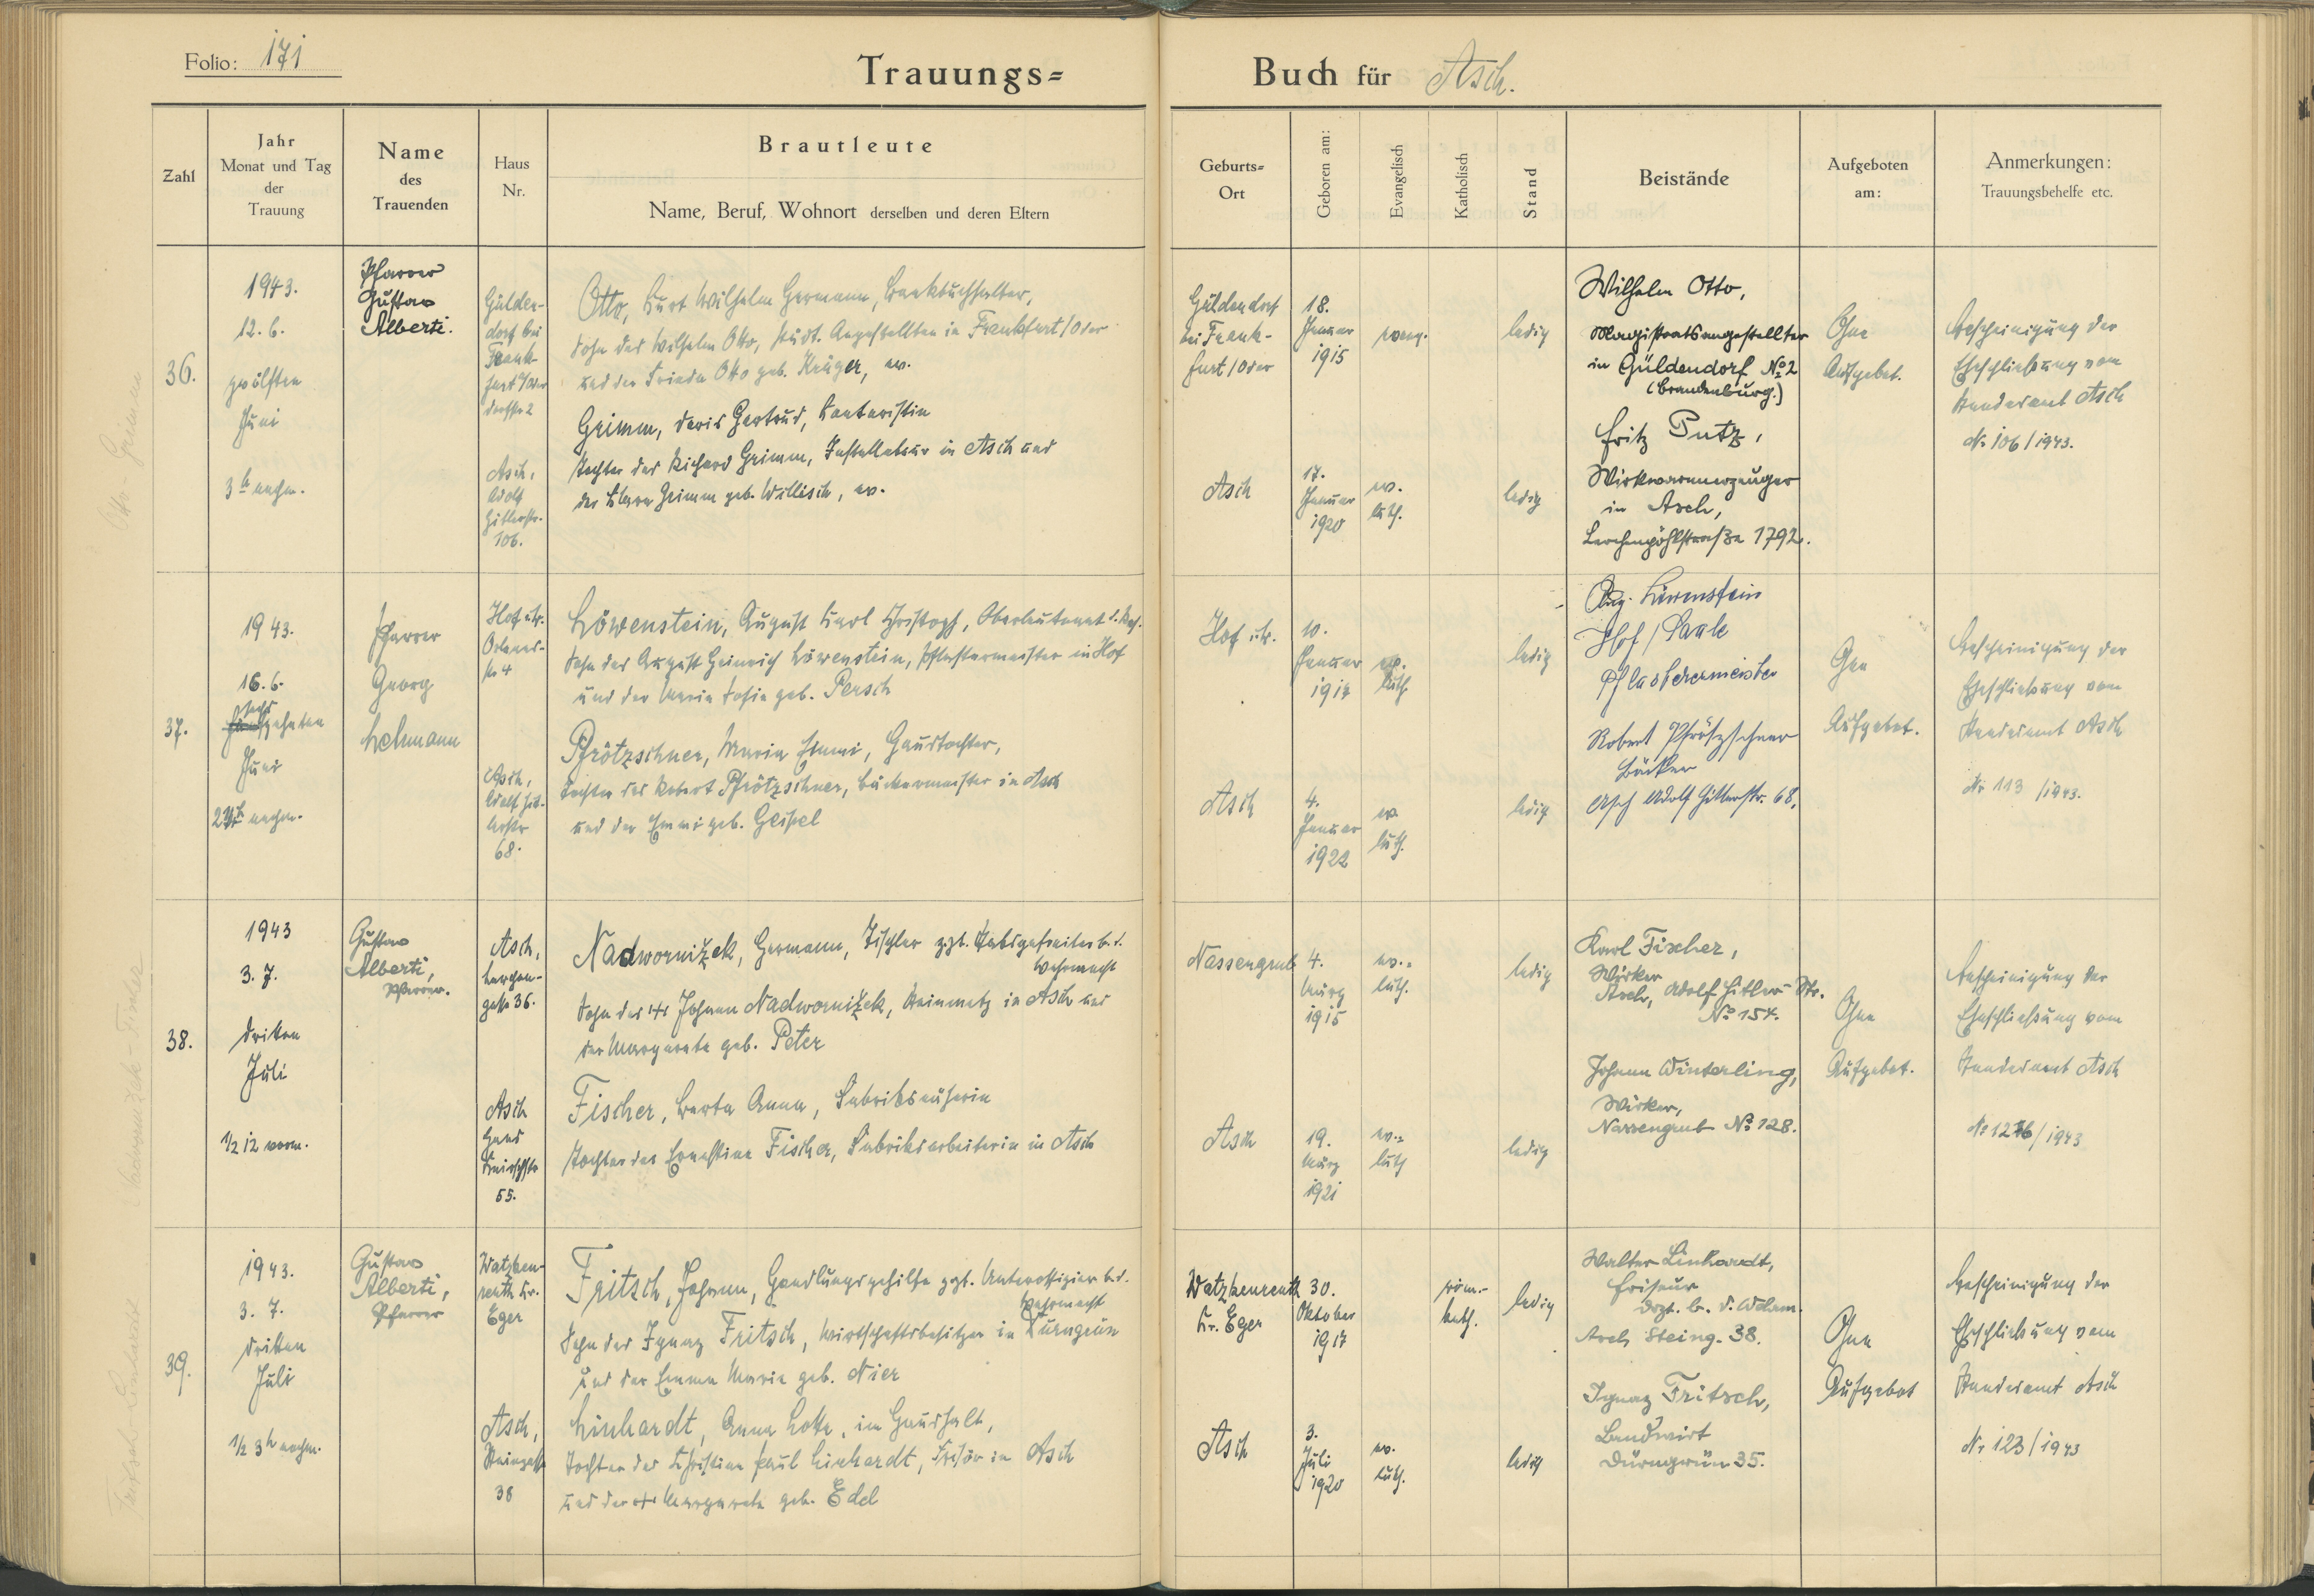 Folio: 171
Trauungs= Buch für Asch.
Zahl
Jahr
Monat und Tag
der
Trauung
Name
des
Trauenden
Haus
Nr.
Brautleute
Name, Beruf, Wohnort derselben und deren Eltern
Geburts=
Ort
Geboren am:
Evangelisch
Katholisch
Stand
Beistände
Aufgeboten
am:
Anmerkungen:
Trauungsbehelfe etc.
36.
1943.
12. 6.
zwölften
Juni
3h nachm.
Pfarrer
Gustav
Alberti.
Gülden-
dorf bei
Frank-
furt/Oder
Dorfstr 2
Otto, Kurt Wilhelm Hermann, Bankbuchhalter,
Sohn des Wilhelm Otto, städt. Angestellten in Frankfurt/Oder
und der Frieda Otto geb. Krüger, ev.
Asch,
Adolf
Hitlerstr.
106.
Grimm, Doris Gertrud, Kontoristin
Tochter des Richard Grimm, Installateur in Asch und
der Klara Grimm geb. Willisch, ev.
Güldendorf
bei Frank-
furt/Oder
18.
Januar
1915
evang.
ledig
Asch
17.
Januar
1920
ev.
luth.
ledig
Wilhelm Otto,
Magistratsangestellter
in Güldendorf No 2
(Brandenburg.)
Fritz Putz,
Wirkwarenerzeuger
in Asch,
Lerchenpöhlstraße 1792.
Ohne
Aufgebot.
Bescheinigung der
Eheschließung vom
Standesamt Asch
Nr. 106/1943.
37.
1943.
16. 6.
sechzehnten
Juni
nachm.
Pfarrer
Georg
Lehmann
Hof
str 4
Löwenstein, August Karl Christoph, Oberleutnant d. Res.
Sohn des August Heinrich Löwenstein, Pflastermeister in Hof
und der Maria Sofie geb. Persch
Asch,
Adolf Hit-
lerstr
68.
Pfrötzschner, Maria Emmi, Haustochter,
Tochter des Robert Pfrötzschner, Bäckermeister in Asch
und der Emmi geb. Geipel
Hof
10.
Januar
1917
ev.
luth.
ledig
Asch
4.
Januar
1922
ev
luth.
ledig
Aug. Löwenstein
Hof / Saale
Pflasterermeister
Robert Pfrötzschner
Bäcker
Asch Adolf Hitlerstr. 68.
Ohne
Aufgebot.
Bescheinigung der
Eheschließung vom
Standesamt Asch
Nr 113 /1943.
38.
1943
3. 7.
dritten
Juli
1/2 12 vorm.
Gustav
Alberti,
Pfarrer.
Asch,
Lerchen-
gasse 36.
Nadwornižek, Hermann, Tischler zzt. Stabsgefreiter b. d.
Wehrmacht
Sohn des + Johann Nadwornižek, Steinmetz in Asch und
der Margareta geb. Peter
Asch
Hans
Knirschstr
55.
Fischer, Berta Anna, Fabriksnäherin
Tochter der Ernestine Fischer, Fabriksarbeiterin in Asch
Nassengrub
4.
März
1915
ev.=
luth.
ledig
Asch
19.
März
1921
ev.=
luth
ledig
Karl Fischer,
Wirker
Asch, Adolf Hitler-Str.
No 154.
Johann Winterling,
Wirker,
Nassengrub No 128.
Ohne
Aufgebot.
Bescheinigung der
Eheschließung vom
Standesamt Asch
/1943
39.
1943.
3. 7.
dritten
Juli
1/2 3h nachm.
Gustav
Alberti,
Pfarrer
Watzken-
reuth Kr.
Eger
Fritsch, Johann, Handlungsgehilfe zzt. Unteroffizier b. d.
Wehrmacht
Sohn des Ignaz Fritsch, Wirtschaftsbesitzer in Dürngrün
und der Emma Maria geb. Nier
Asch,
Steingasse
38
Linhardt, Anna Lotte, im Haushalt,
Tochter des Christian Paul Linhardt, Frisör in Asch
und der + Margareta geb. Edel
Watzkenreuth
Kr. Eger
30.
Oktober
1917
röm.-
kath.
ledig
Asch
3.
Juli
1920
ev.
luth.
ledig
Walter Linhardt,
Friseur
Asch Steing. 38.
Ignaz Fritsch,
Landwirt
Dürngrün 35.
Ohne
Aufgebot
Bescheinigung der
Eheschließung vom
Standesamt Asch
Nr 123/1943
Otto - Grimm
Nadwornižek - Fischer
Fritsch - Linhardt